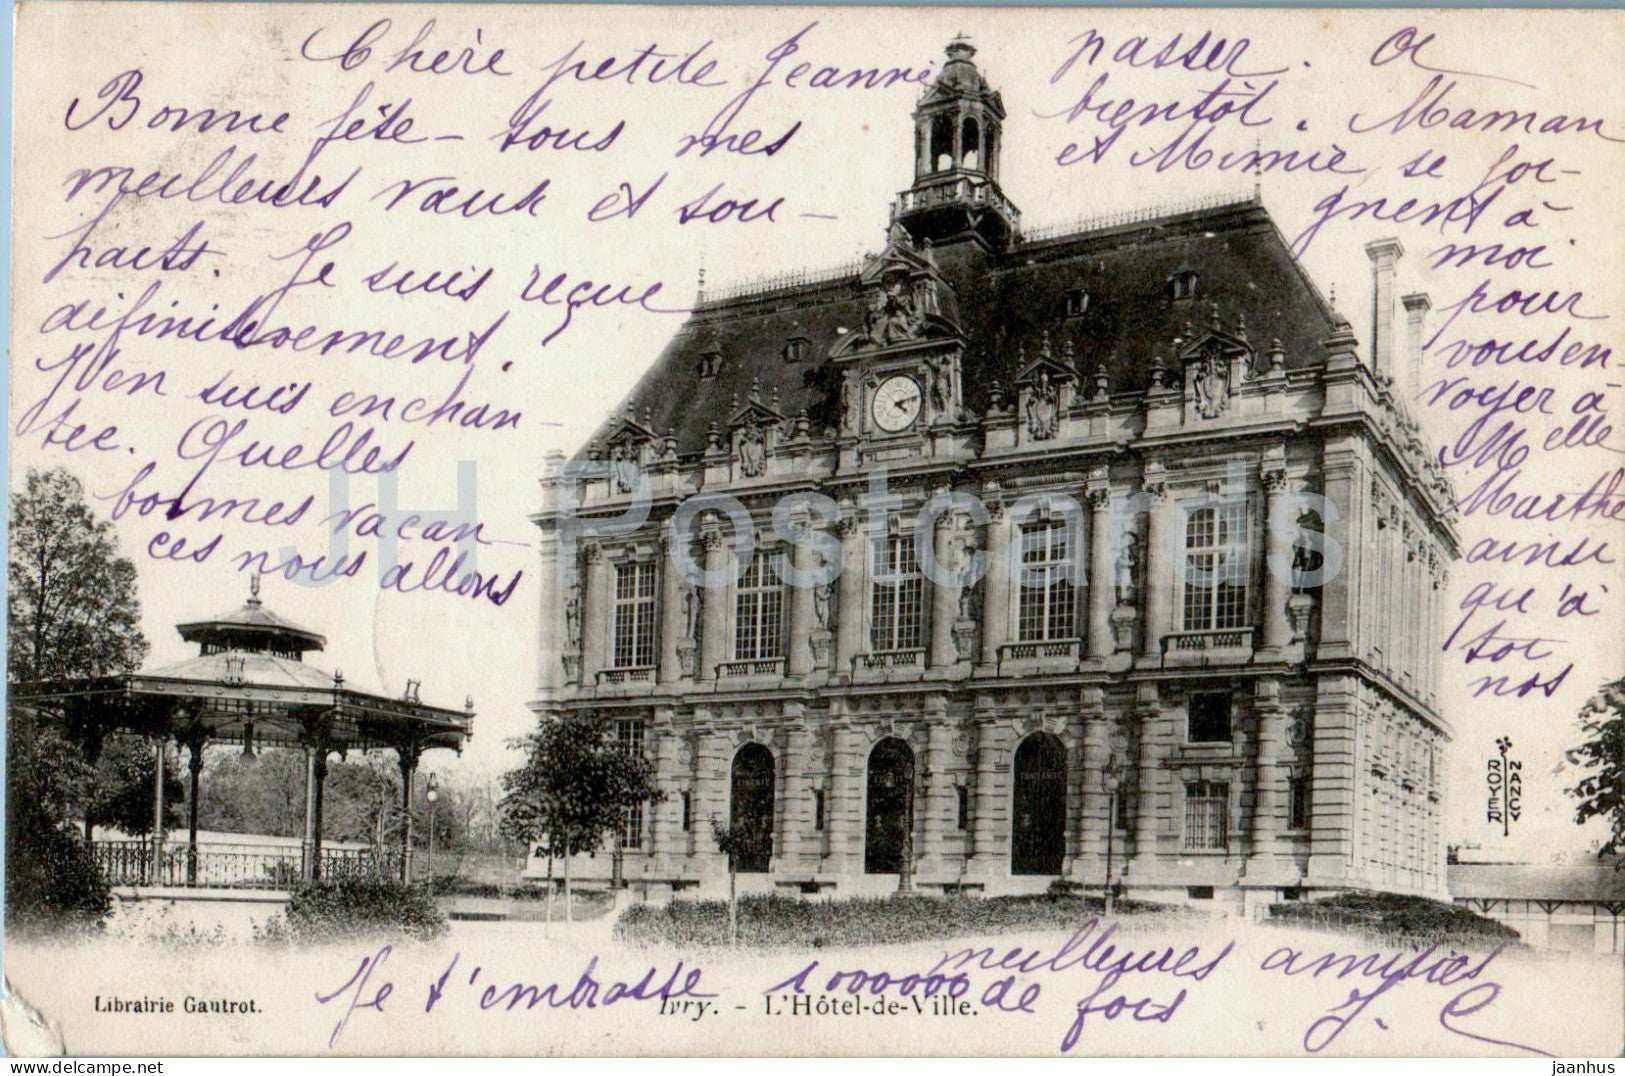 Chère petite Jeanne
Bonne fête – tous mes
meilleurs vœux et sou-
haits. Je suis reçue
définitivement.
J'en suis enchan-
tée. Quelles
bonnes vacan-
ces nous allons
passer. A
bientôt. Maman
et Mimie se joi-
gnent à
moi
pour
vous en-
voyer à
Melle
Marthe
ainsi
qu'à
toi
nos
meilleures amitiés
Je t'embrasse 1000000 de fois J. C
ROYER
NANCY
LIBERTÉ
FRATERNITÉ
Librairie Gautrot.
Ivry. - L'Hôtel-de-Ville.
JH Postcards
jaanhus